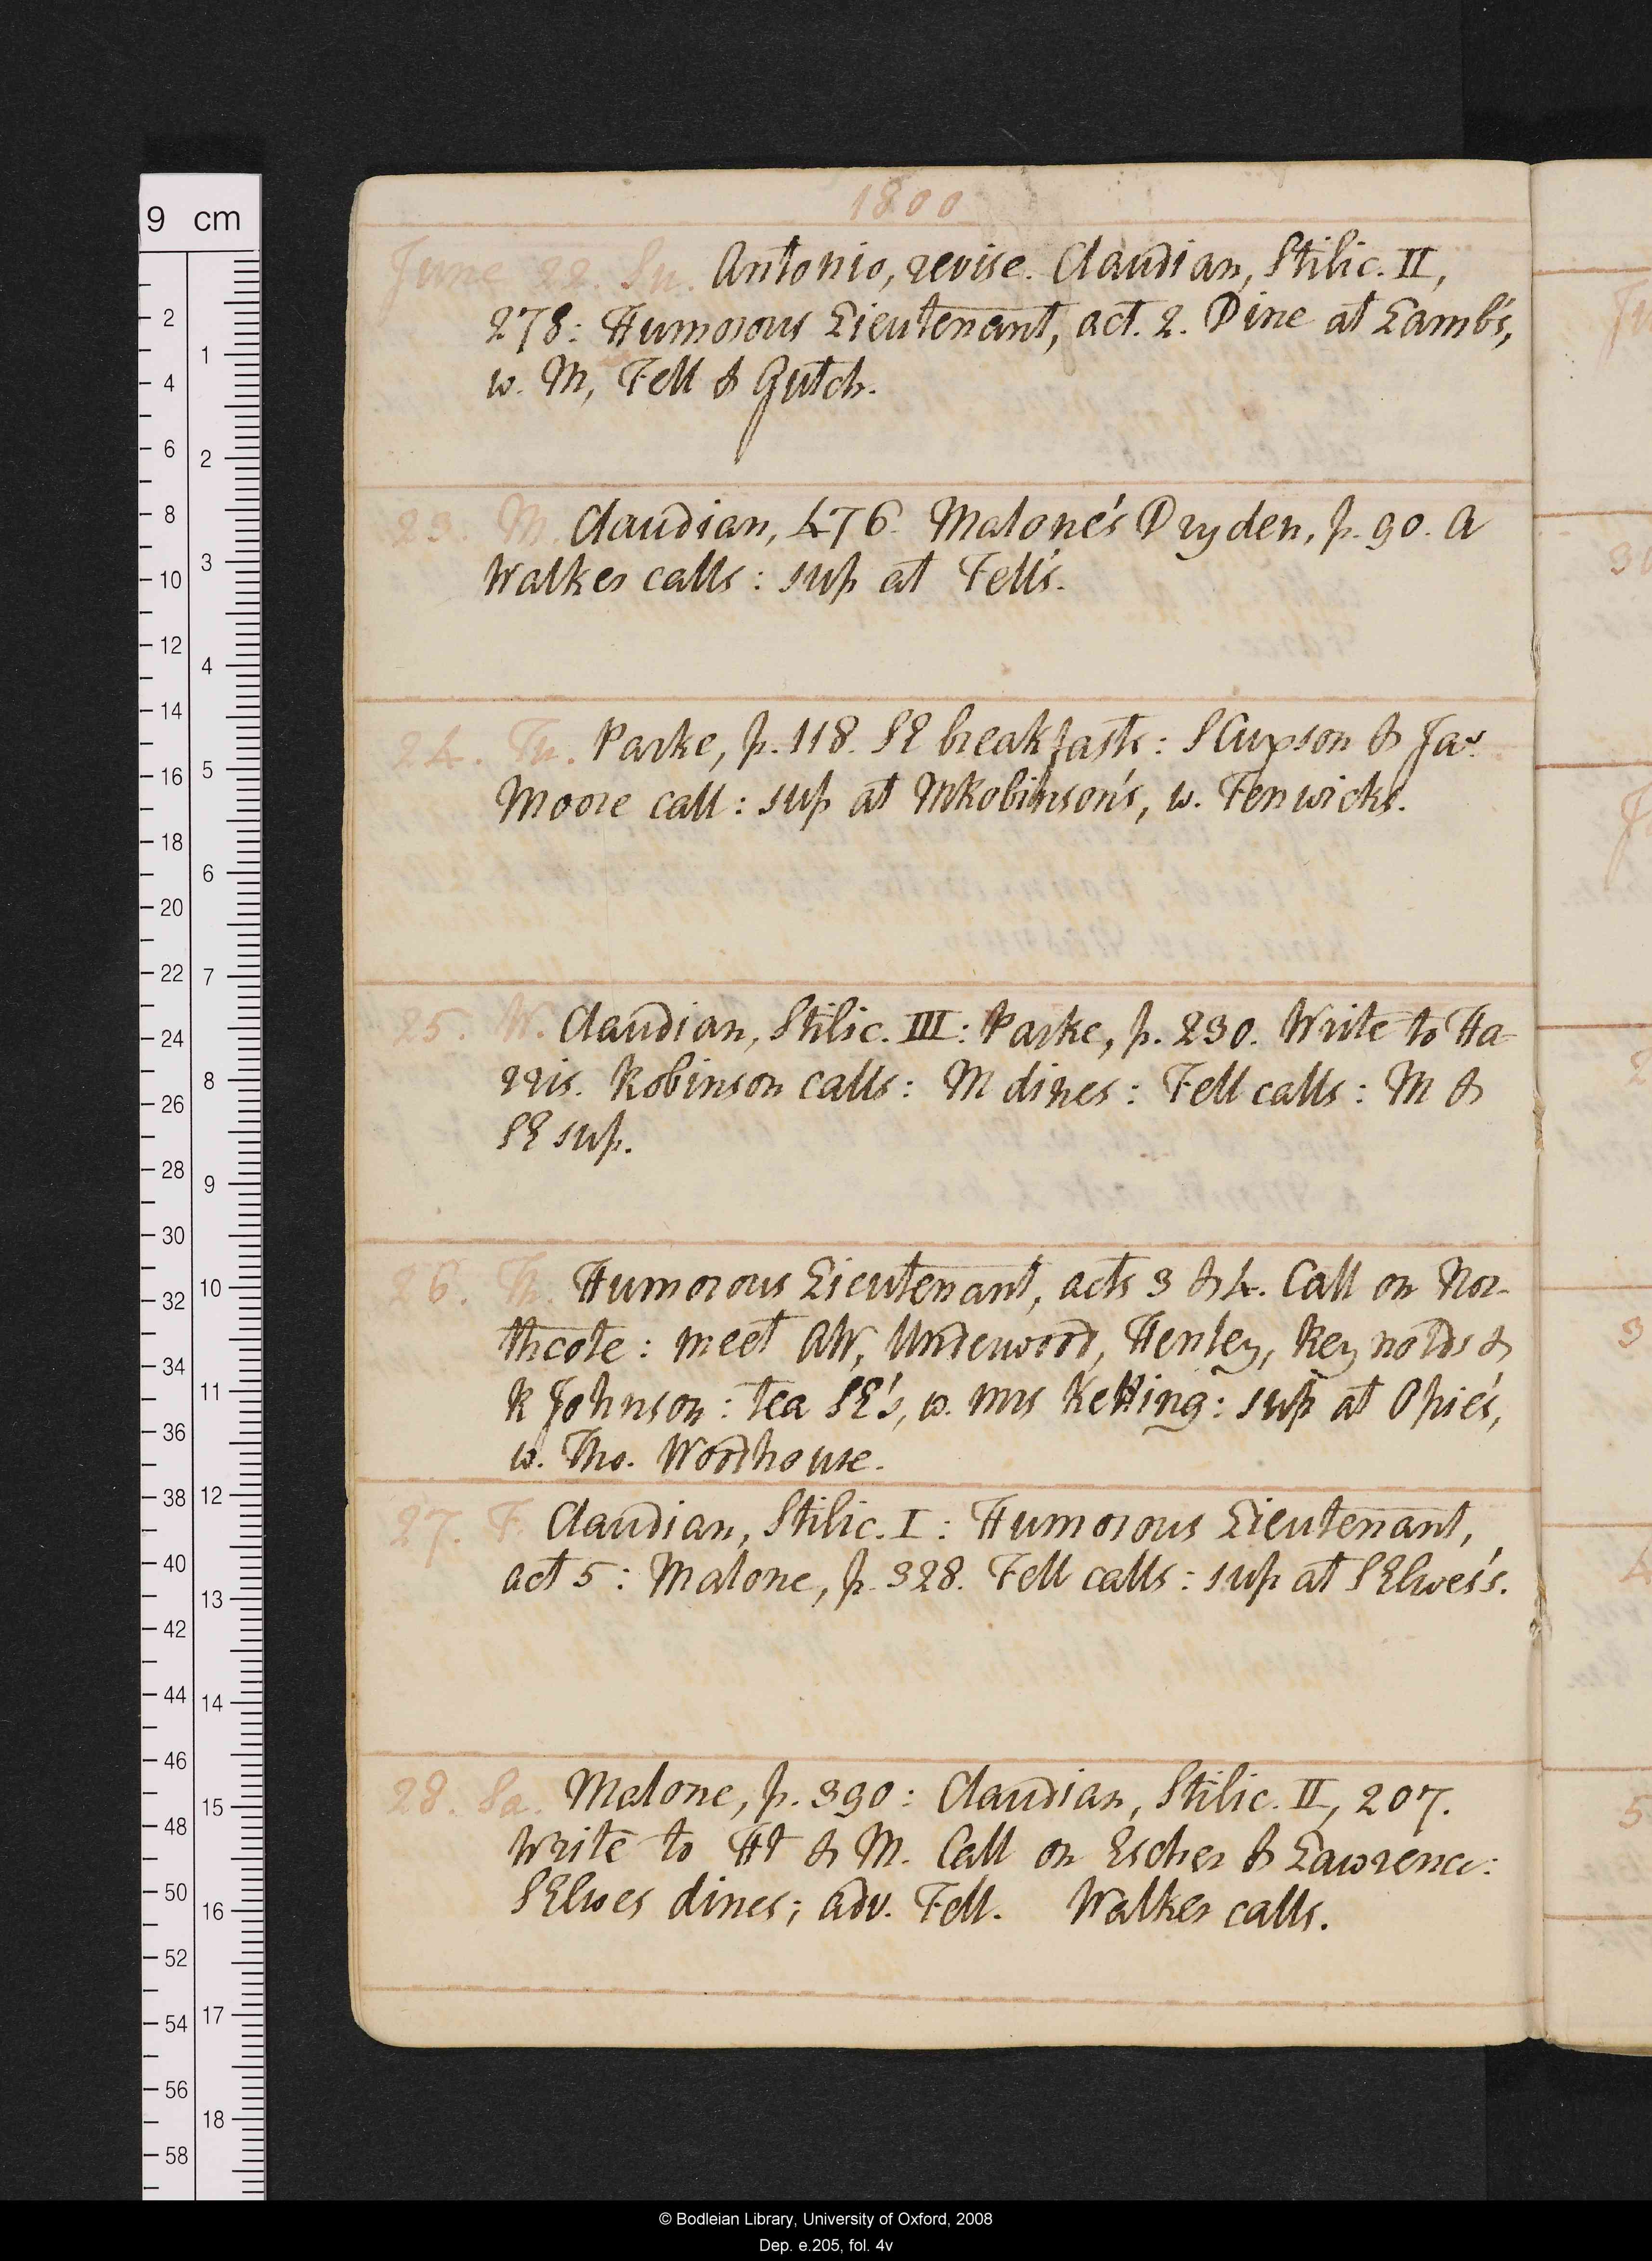 1800
June 22. Su. Antonio, revise. Claudian, Stilic. II,
278: Humorous Lieutenant, act. 2. Dine at Lamb's,
w. M, Fell & Gutch.
23. M. Claudian, 476. Malone's Dryden, p. 90. A
Walker calls: sup at Fell's.
24. Tu. Parke, p. 118. SE breakfasts: & Jas
Moore call: sup at MRobinson's, w. Fenwicks.
25. W. Claudian, Stilic. III: Parke, p. 230. Write to Ha-
rris. Robinson calls: M dines: Fell calls: M &
SE sup.
26. Th. Humorous Lieutenant, acts 3 & 4. Call on Nor-
thcote: meet AW, Underwood, Henley, Reynolds &
R Johnson: tea SE's, w. Mrs Ketting: sup at Opie's,
w. Tho. Woodhouse.
27. F. Claudian, Stilic. I: Humorous Lieutenant,
act 5: Malone, p. 328. Fell calls: sup at SElwes's.
28. Sa. Malone, p. 390: Claudian, Stilic. II, 207.
Write to Ht & M. Call on Escher & Lawrence:
SElwes dines; adv. Fell. Walker calls.
9 cm
2
4
6
8
10
12
14
16
18
20
22
24
26
28
30
32
34
36
38
40
42
44
46
48
50
52
54
56
58
1
2
3
4
5
6
7
8
9
10
11
12
13
14
15
16
17
18
© Bodleian Library, University of Oxford, 2008
Dep. e.205, fol. 4v